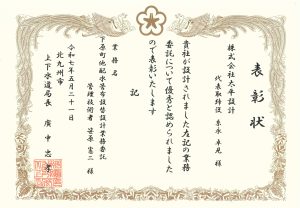 表彰状
株式会社太平設計
代表取締役 末永 卓見 様
貴社が設計されました左記の業務
委託について優秀と認められました
ので表彰いたします
記
業務名
下原町他配水管布設替設計業務委託
管理技術者 笠原 憲二 様
令和七年五月二十一日
北九州市
上下水道局長 廣中忠孝